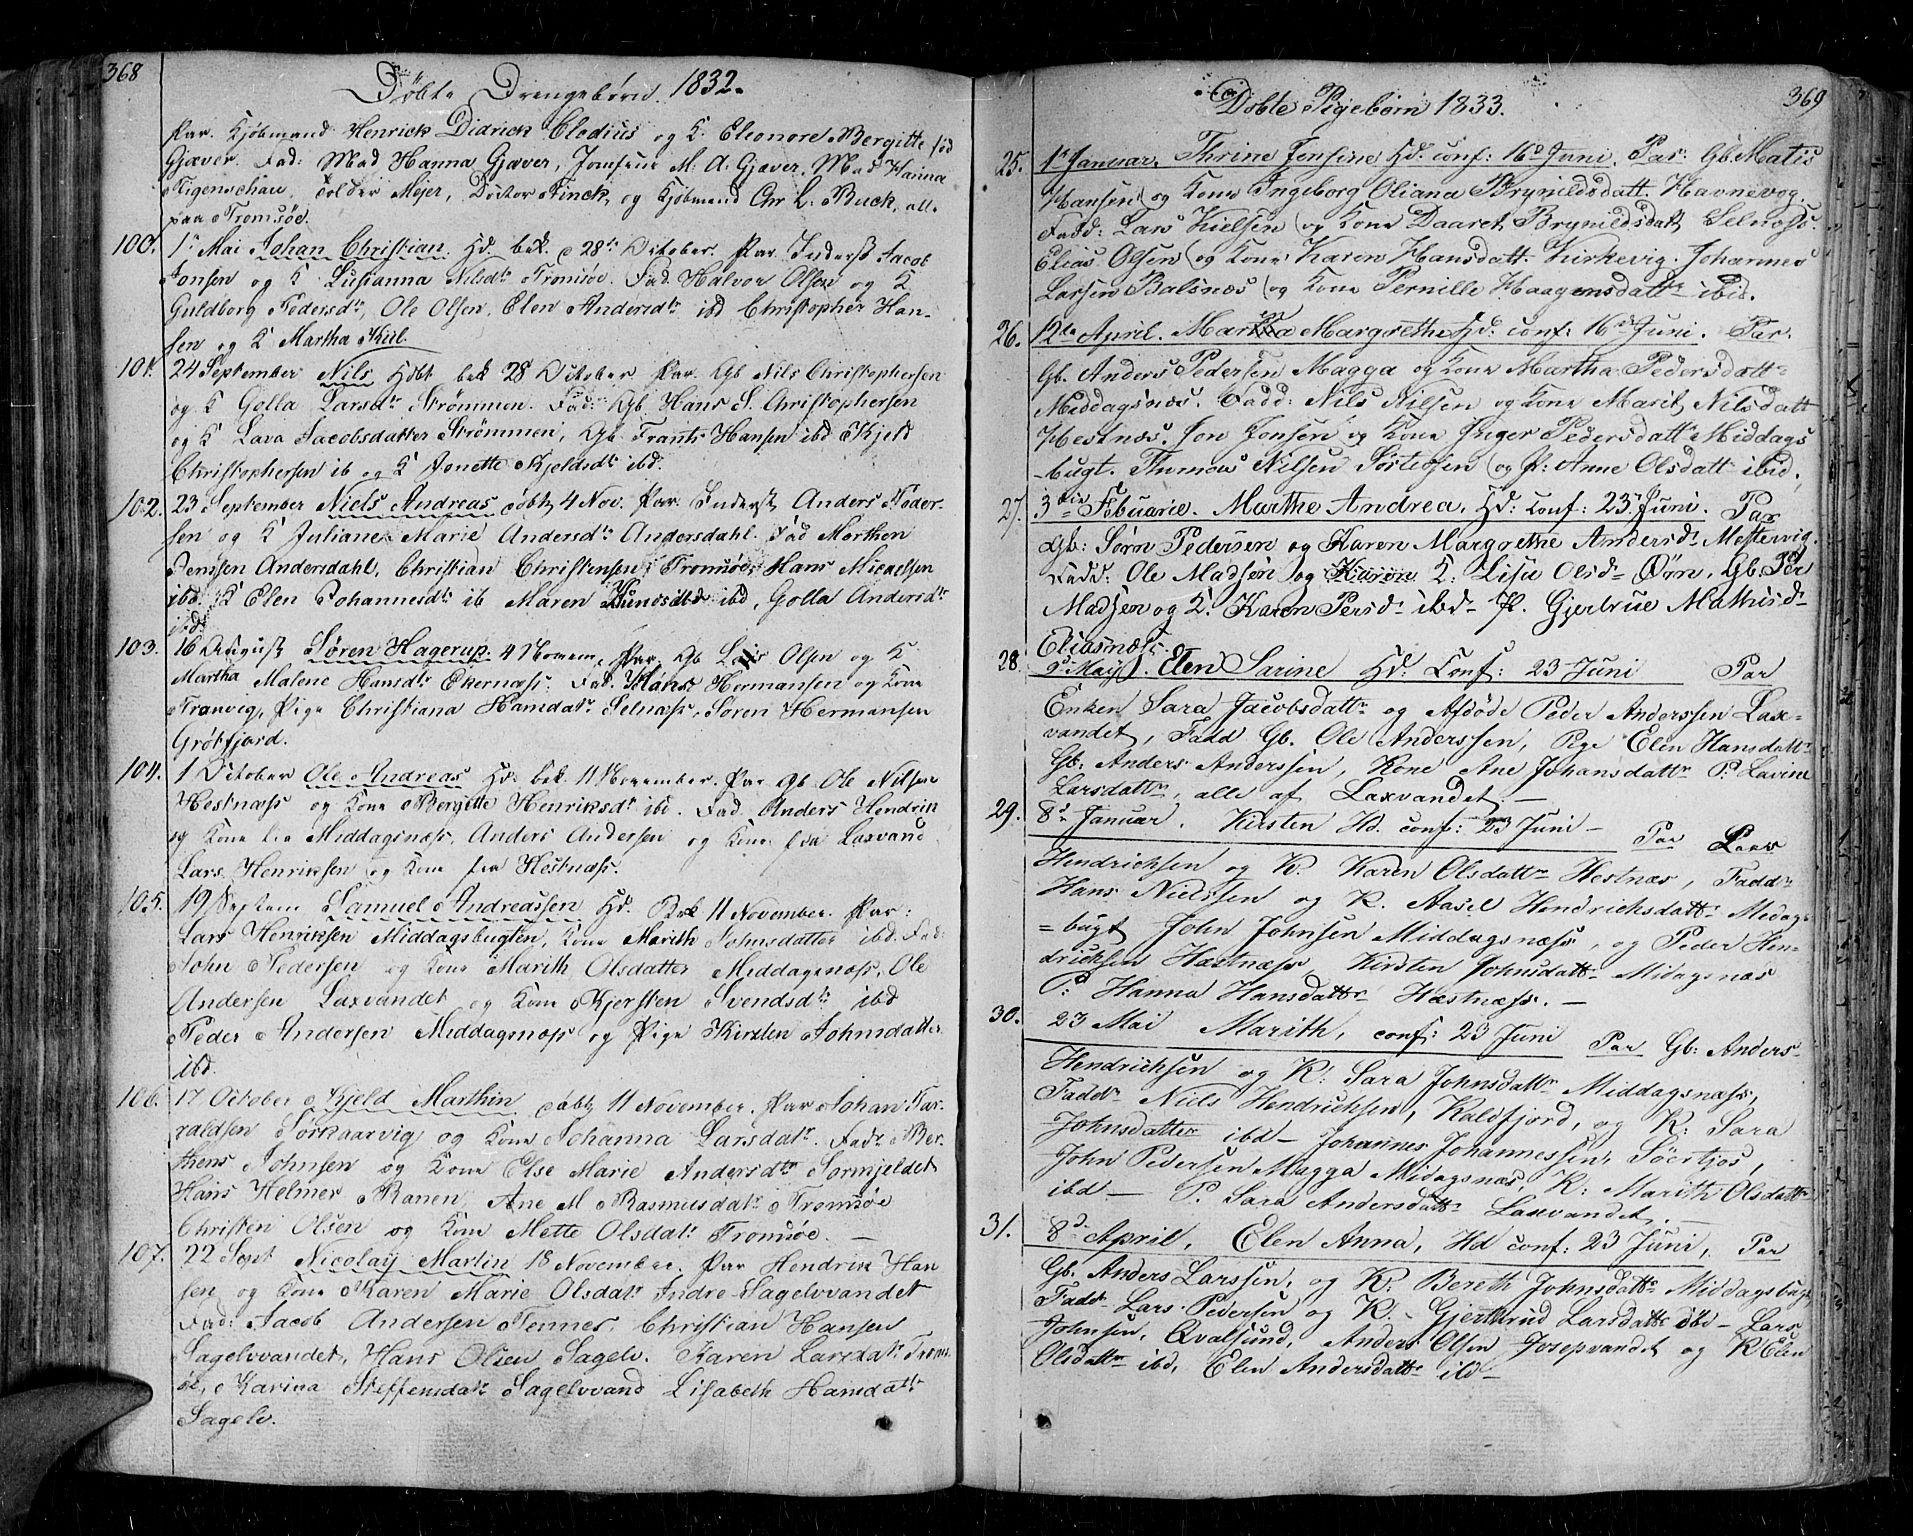 368
Döbte Drengebørn. 1832.
Par. Kjöbmand Henrick Didrick Clodius og K. Eleonore Bergitte föd
Gjæver. Fad: Mad Hanna Gjæver, Jomfrue M. A. Gjæver, Mad Hanna
Figenschau, Tolder Mejer, Doktor Finck, og Kjöbmand Chr L. Buck, alle
paa Tromsöe.
100. 1te Mai Johan Christian. Hd. bek. 28de October. Par. Inderst Jacob
Jonsen og K Lusianna Nilsdtr Tromsöe. Fad. Halvor Olsen og K
Guldborg Pedersdtr, Ole Olsen, Elen Andersdtr ibd Christopher Han-
sen og K Martha Kiil.
101. 24 September Nils Hdbt bek 28 October Par. Gb Nils Christophersen
og K Golla Larsdtr Strømmen. Fad: Gb. Hans S. Christophersen
og K Lava Jacobsdatter Strømmen, Gb. Frants Hansen ibd Kjeld
Christophersen ib og K Jonette Kjeldsdtr ibd.
102. 23 September Niels Andreas döbt 4 Nov. Par. Inderst Anders Peder-
sen og K Juliane Marie Andersdtr Andersdahl. Fad Morthen
Jenssen Andersdahl, Christian Christensen Tromsöe, Hans Micaelsen
ibd. K Elen Johannesdtr ib Maren ibd, Golla Andersdtr
ibd.
103. 16 August Sören Hagerup. 4 Novem. Par. Gb Lars Olsen og K
Martha Malene Hansdtr Ekernæss. Fad. Mons Hermansen og Kone
Tranvig, Pige Christiana Hansdatr Selnæss, Sören Hermansen
Gröttfjord.
104. 1 October Ole Andreas Hd. bek. 11 November. Par Gb. Ole Nilsen
Hestnæss og Kone Bergitte Henriksdtr ibd. Fad. Anders Hendrik
og Kone fra Middagsnæss, Anders Andersen og Kone fra Laxvand
Lars Henriksen og Kone fra Hestnæss.
105. 19 Septem Samuel Andreassen Hd. Bek 11 November. Par:
Lars Henriksen Middagsbugten, Kone Marith Johnsdatter ibd. Fad:
John Pedersen og Kone Marith Olsdatter Middagsnæss, Ole
Andersen Laxvandet og Kone Kjersten Svendsdtr ibd
Peder Andersen Middagsnæss og Pige Kirsten Johnsdatter
ibd.
106. 17 October Kjeld Marthin döbt 11 November. Par Johan Ha-
raldsen Sörkaarvig og Kone Johanna Larsdatr. Fadr Ber-
thens Johnsen og Kone Else Marie Andersdtr Sörmfjeldet
Hans Helmer Ranen, Ane M. Rasmusdatr Tromsöe
Christen Olsen og Kone Mette Olsdatr Tromsöe.
107. 22 Sept Nicolay Martin 18 November. Par Hendrik Han
sen og Kone Karen Marie Olsdatr Indre-Sagelvvandet
Fad: Jacob Andersen Tennes, Christian Hansen
Sagelvvandet, Hans Olsen Sagelv. Karen Larsdatr Troms-
öe, Karina Steffensdatr Sagelvvand Lisabeth Hansdatr
Sagelv.
369
Döbte Pigebørn 1833.
25. 1te Januar. Thrine Jensine Hd: conf: 16d Juni. Par: Gb. Matis
Hansen og Kone Ingeborg Oliana Brynildsdatt. Havnevog.
Fadd: Lars Kielsen og Kone Daaret Brynildsdatt Selnæss.
Elias Olsen og Kone Karen Hansdatt. Kirkevig. Johannes
Larsen Balsnæs og Kone Pernille Haagensdattr ibid.
26. 12te April. Maren Margrethe Hd: conf: 16de Juni. Par.
Gb. Anders Pedersen Magga og Kone Martha Pedersdatt-
Middagsnæs. Fadd: Nils Nilsen og Kone Marit Nilsdatt
Hestnæs. Jon Jonsen og Kone Inger Pedersdattr Middags
-bugt. Thomas Nilsen Sörtiosen og P: Anne Olsdatt ibid.
27. 3die Febuarie. Marthe Andrea. Hd: Conf: 23. Juni. Par
Gb: Sørn Pedersen og Karen Margrethe Andersdr Mestervig.
Fadd: Ole Madsen og K: Lisa Olsd- Ørn, Gb: Per
Madsen og K. Karen Persdr ibd- P. Gjertrue Mathisd-
Eliasnæss.
28. 9d May. Elen Sarine Hd: Conf: 23 Juni Par
Enken Sara Jacobsdattr og Afdöde Peder Anderssen Lax=
vandet, Fadd Gb. Ole Anderssen, Pige Elen Hansdattr
Gb: Anders Anderssen, Kone Ane Johansdattr P: Lavine
Larsdattr, alle af Laxvandet. —
29. 8d Januar. Kirsten Hd. conf: 23 Juni — Par Lars
Hendricksen og K. Karen Olsdattr Hestnæs, Faddr
Hans Nielssen og K. Aasel Hendricksdattr Midags
=bugt John Johnsen Middagsnæss, og Peder Hen-
dricksen Hæstnæss, Kirsten Johnsdattr Midagsnæs
P: Hanna Hansdattr Hæstnæss. —
30. 23 Mai Marith, conf: 23 Juni Par Gb: Anders
Hendricksen og K: Sara Johnsdattr Middagsnæss,
Faddr Niels Hendricksen, Kaldfjord, og K: Sara
Johnsdatter ibd — Johannes Johannessen, Söertjos,
John Pedersen Magga Midagsnæs, K: Marith Olsdattr
ibd — P. Sara Andersdattr Laxvandet. —
31. 8d April, Elen Anna, Hd conf: 23 Juni, Par
Gb. Anders Larssen, og K: Bereth Johnsdattr Middagsbugt
Faddr Lars Pedersen og K: Gjerthrud Larsdattr ibd — Lars
Johnsen, Qvalsund, Anders Olsen Josepvandet og K Elen
Olsdattr ibd, Elen Andersdattr ibd—